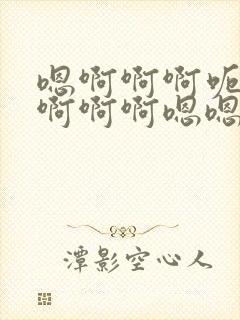 嗯啊啊啊呃
啊啊啊嗯嗯
潭影空心人